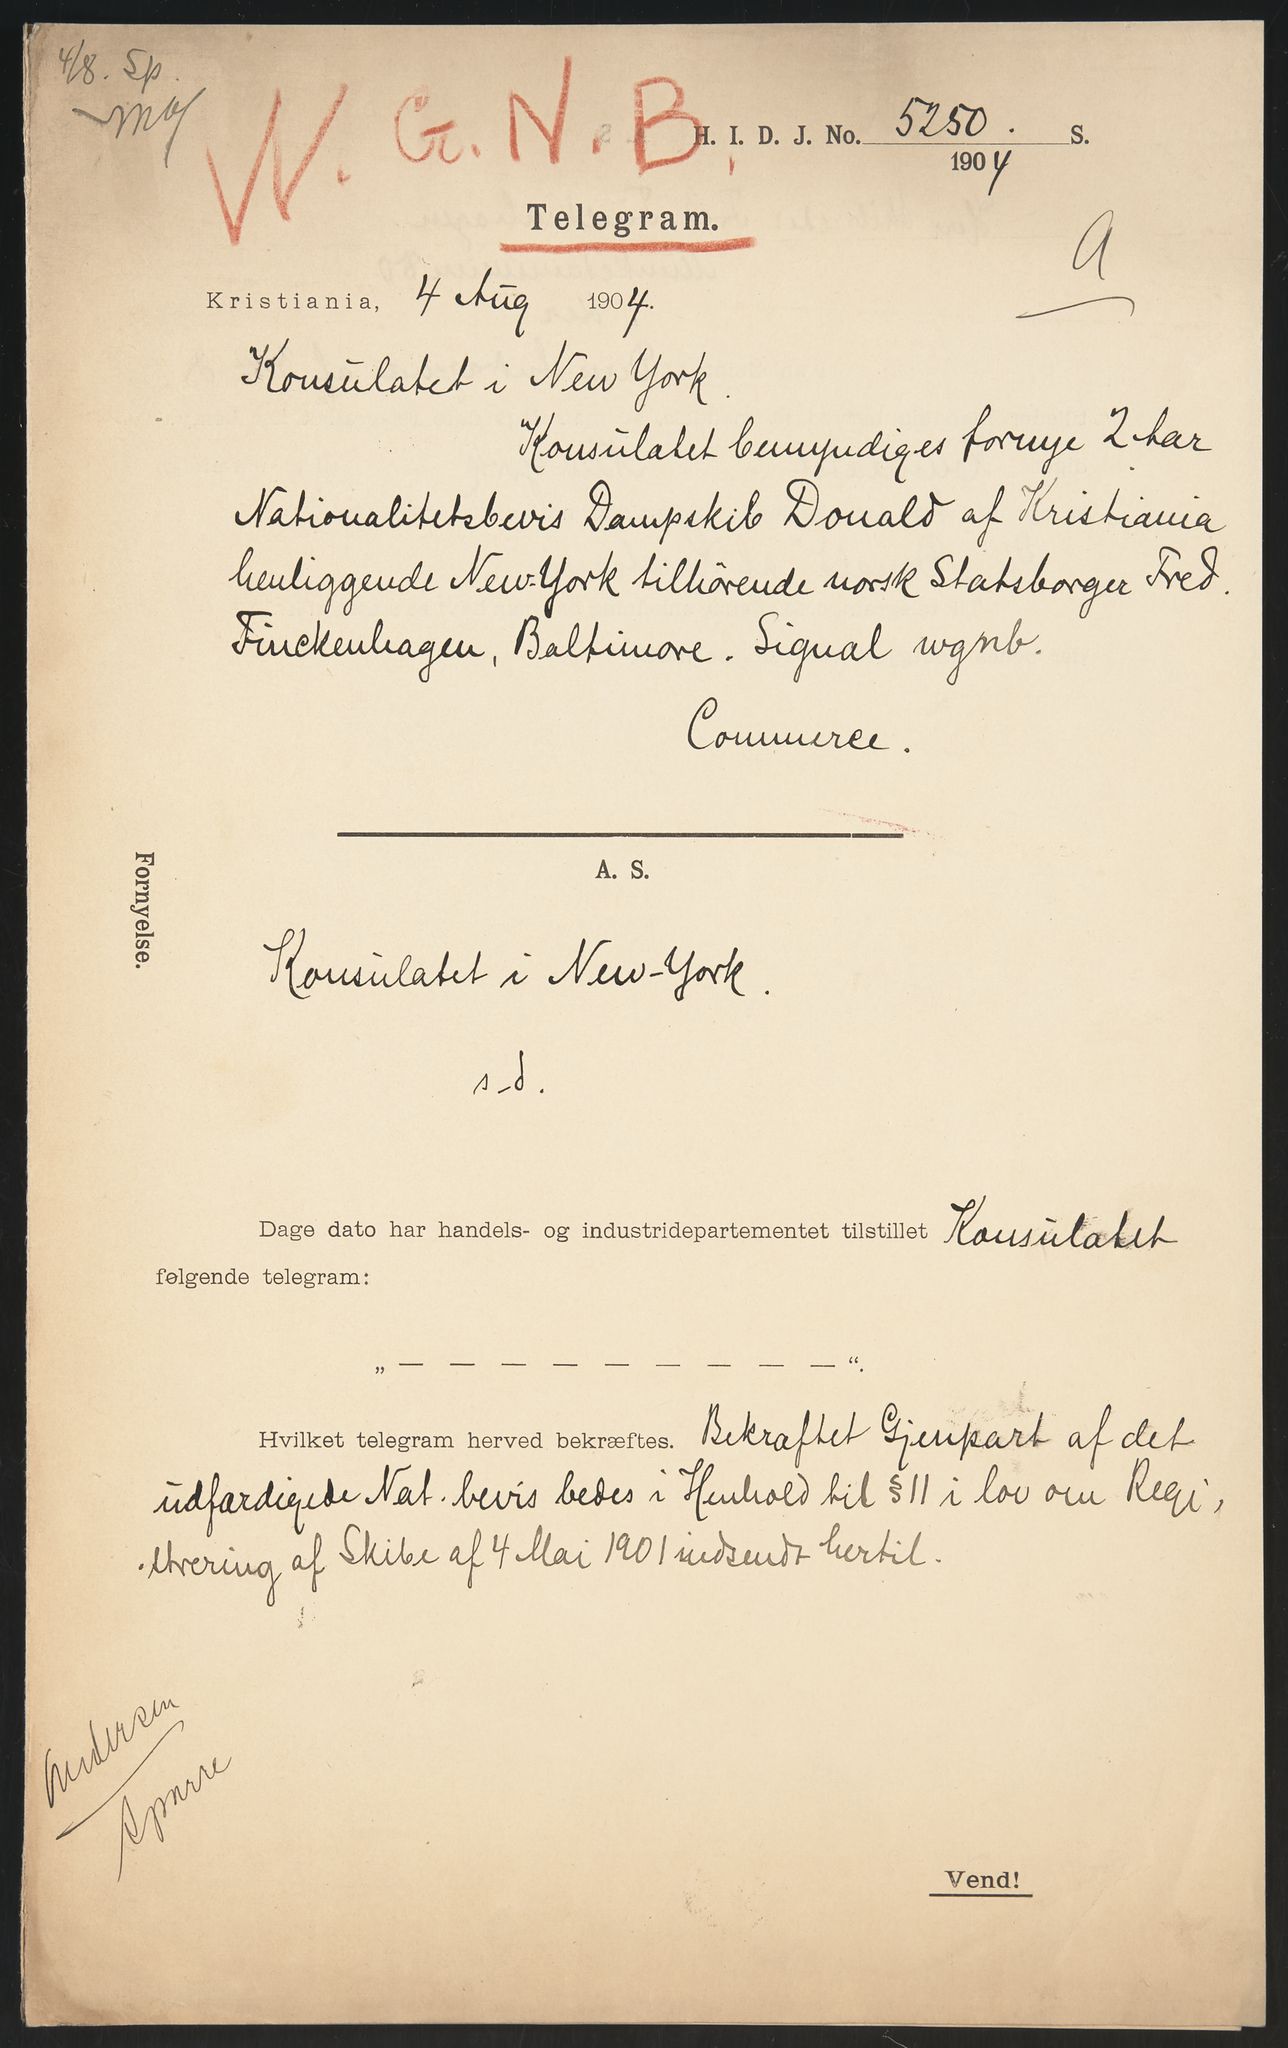 4/8. Sp.
W. G. N. B.
H. I. D. J. No. 5250. S.
1904
Telegram.
A
Kristiania, 4 Aug 1904.
Konsulatet i New York.
Konsulatet bemyndiges fornye 2 aar
Nationalitetsbevis Dampskib Donald af Kristiania
henliggende New-York tilhörende norsk Statsborger Fred.
Finckenhagen, Baltimore. Signal wgnb.
Commerce.
A. S.
Fornyelse.
Konsulatet i New-York.
s-d.
Dage dato har handels- og industridepartementet tilstillet Konsulatet
følgende telegram:
„ — — — — — — — — — “.
Hvilket telegram herved bekræftes. Bekræftet Gjenpart af det
udfærdigede Nat. bevis bedes i Henhold til § 11 i lov om Regi-
strering af Skibe af 4 Mai 1901 indsendt hertil.
Andersen
Sparre
Vend!